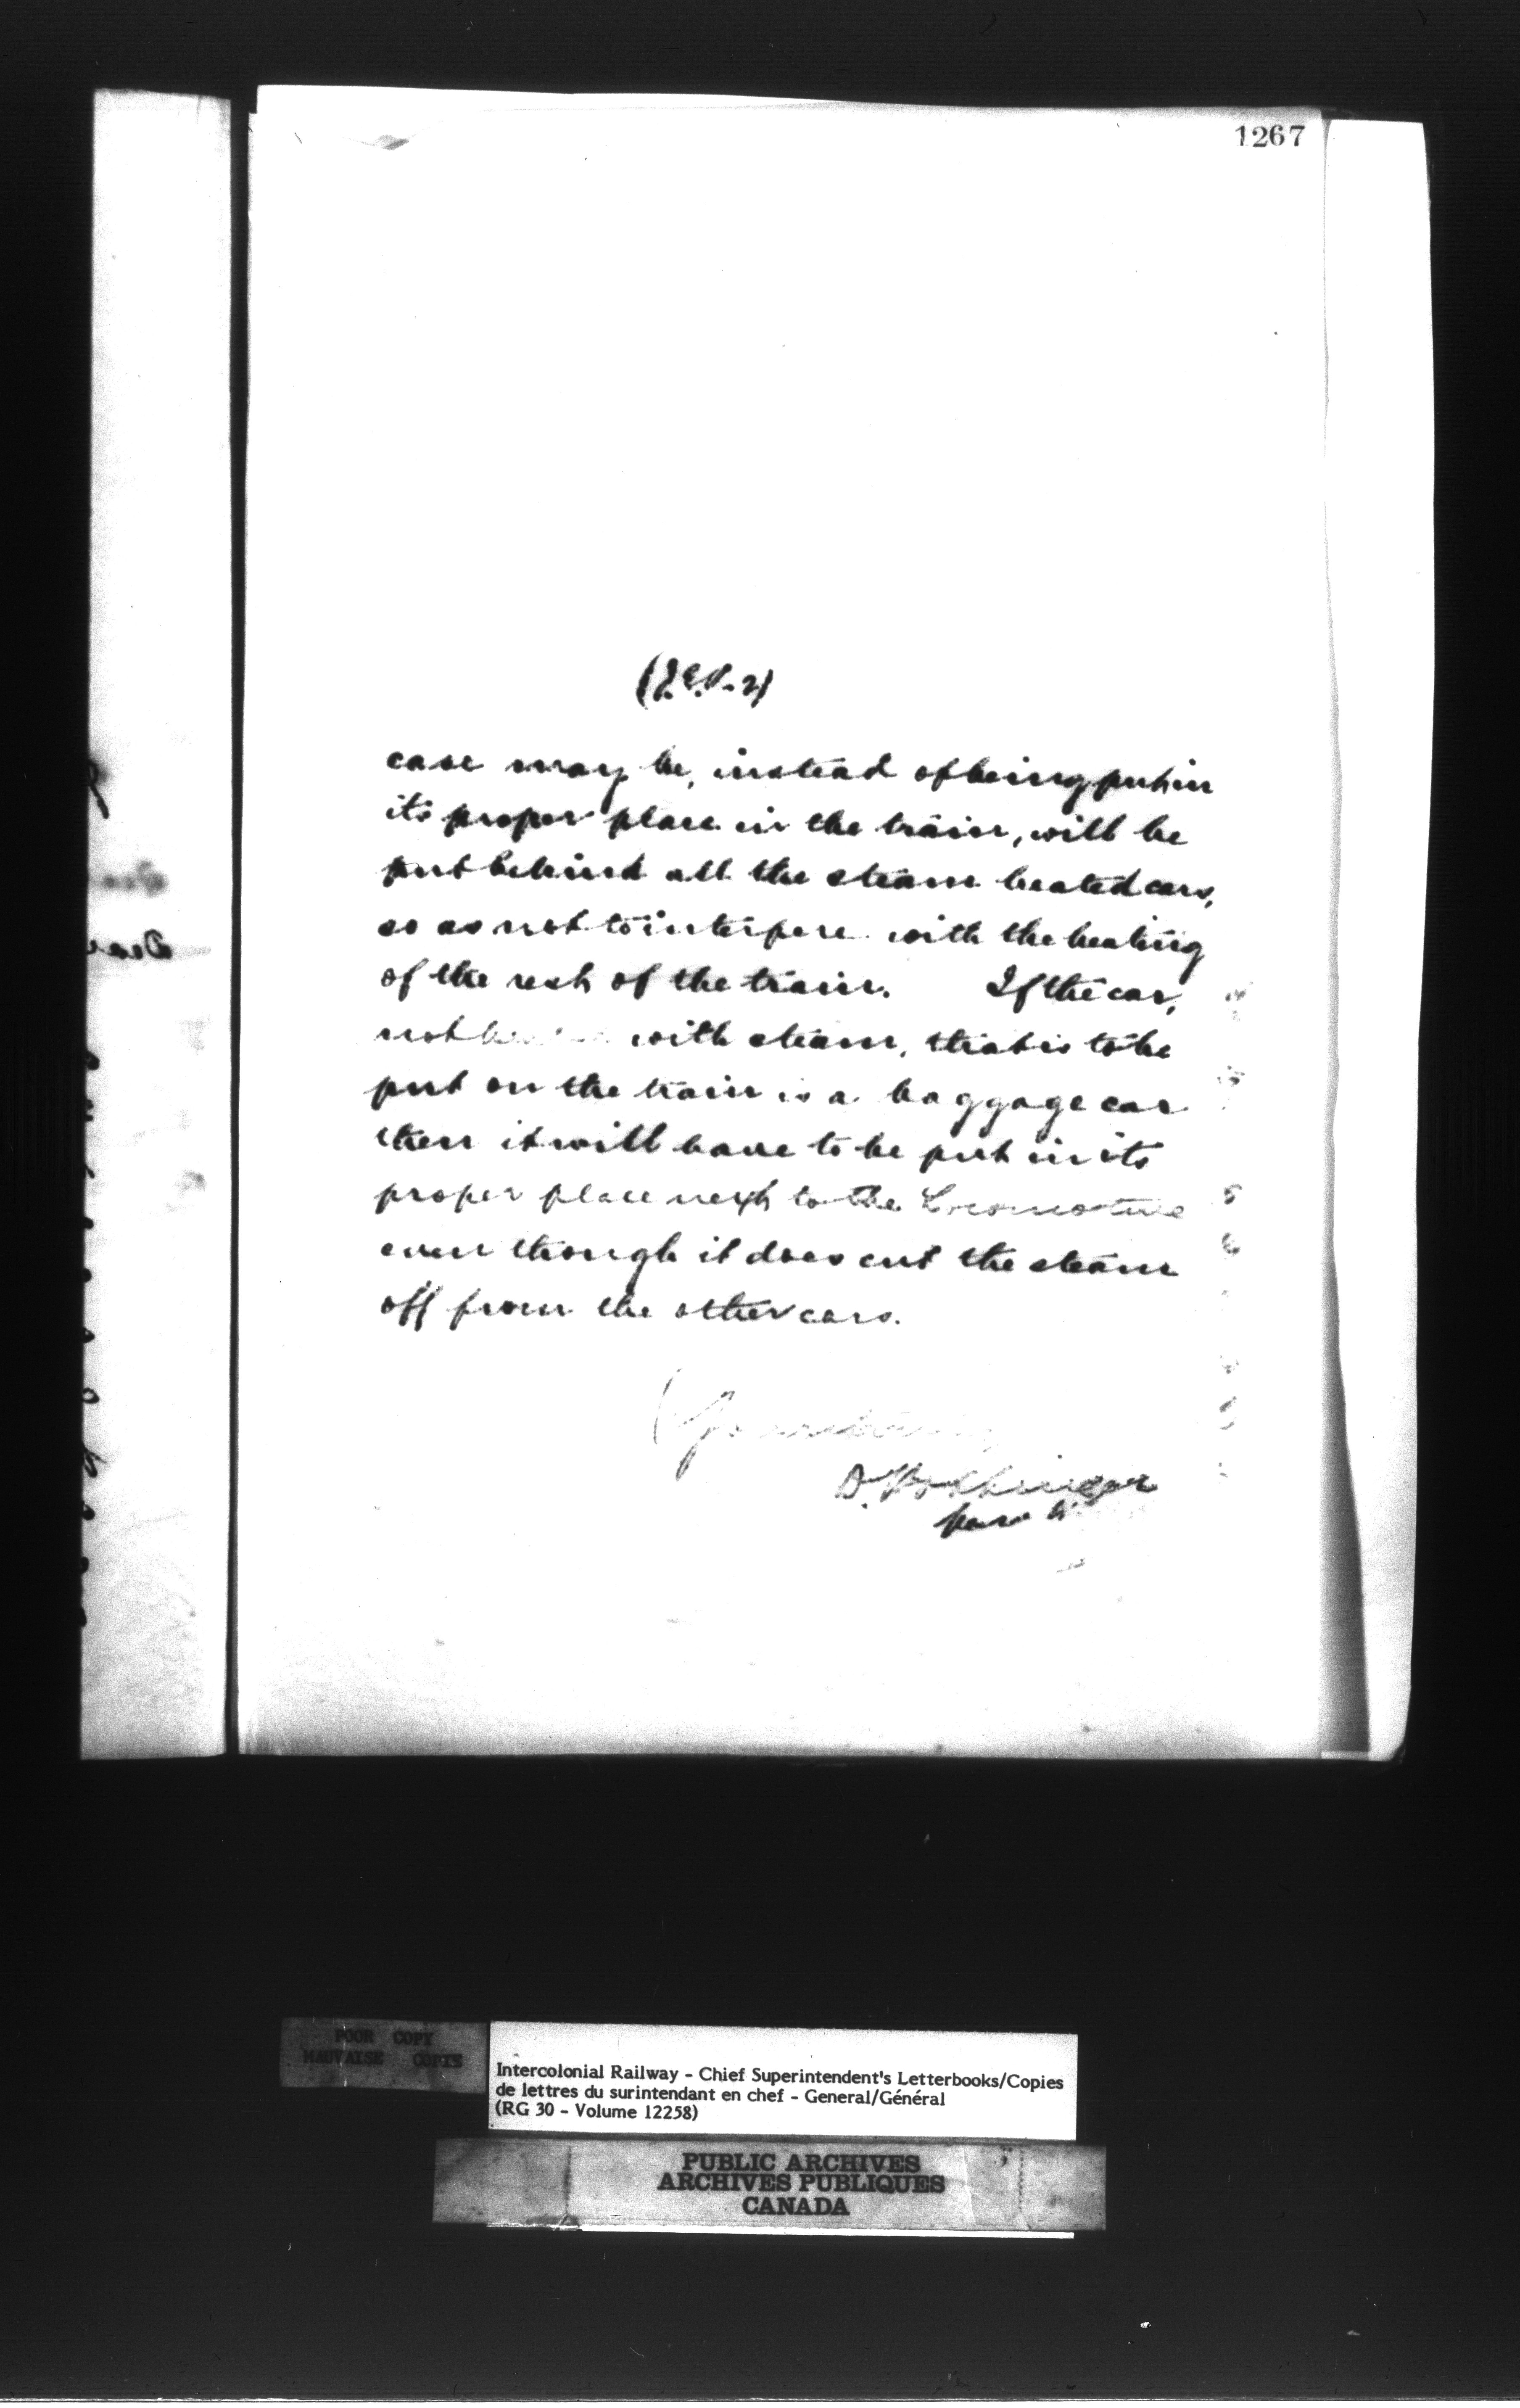 1267
(J.E.P. 2)
case may be, instead of being put in
its proper place in the train, will be
put behind all the steam heated cars,
so as not to interfere with the heating
of the rest of the train. If the car,
not with steam, that is to be
put on the train is a baggage car
then it will have to be put in its
proper place next to the Locomotive
even though it does cut the steam
off from the other cars.
Yours truly
D. Pottinger
POOR COPY
MAUVAISE COPIE
Intercolonial Railway - Chief Superintendent's Letterbooks/Copies
de lettres du surintendant en chef - General/Général
(RG 30 - Volume 12258)
PUBLIC ARCHIVES
ARCHIVES PUBLIQUES
CANADA